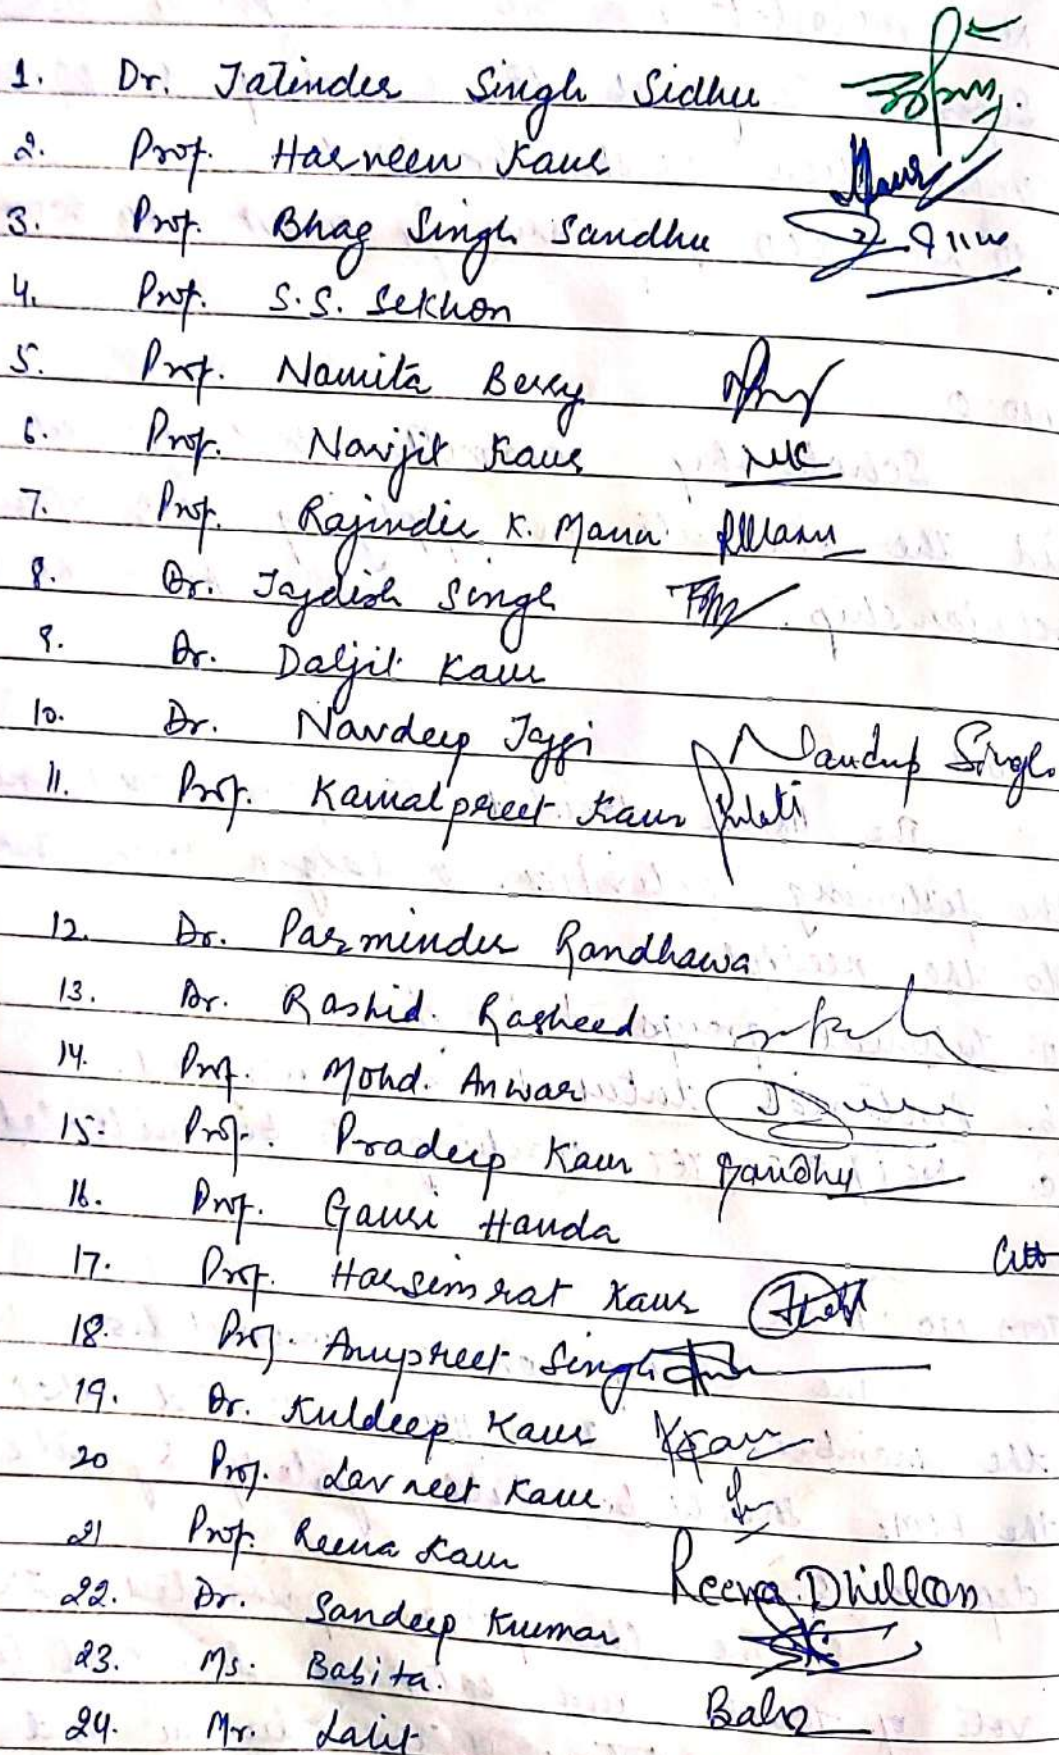 1. Dr. Jatinder Singh Sidhu
2. Prof. Harneen Kaur
3. Prof. Bhag Singh Sandhu
4. Prof. S.S. Sekhon
5. Prof. Namita Berry
6. Prof. Navjit Kaur NK
7. Prof. Rajinder K. Mann RMann
8. Dr. Jagdish Singh
9. Dr. Daljit Kaur
10. Dr. Navdeep Jaggi Navdeep Singh
11. Prof. Kamalpreet Kaur Gulati
12. Dr. Parminder Randhawa
13. Dr. Rashid Rasheed
14. Prof. Mohd. Anwar
15. Prof. Pradeep Kaur Sandhu
16. Prof. Gauri Handa
17. Prof. Harsimrat Kaur
18. Prof. Anupreet Singh
19. Dr. Kuldeep Kaur KKaur
20 Prof. Lavneet Kaur
21 Prof. Reena Kaur Reena Dhillon
22. Dr. Sandeep Kumar
23. Ms. Babita. Baby
24. Mr. Lalit